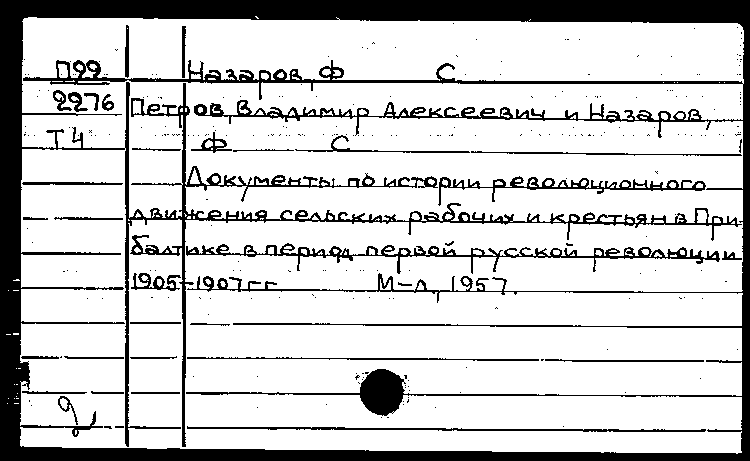 П99 Назаров, Ф С
2276 Петров, Владимир Алексеевич и Назаров,
Т4 Ф С
Документы по истории революционного
движения сельских рабочих и крестьян в При
балтике в период первой русской революции
1905-1907гг М-Л, 1957.